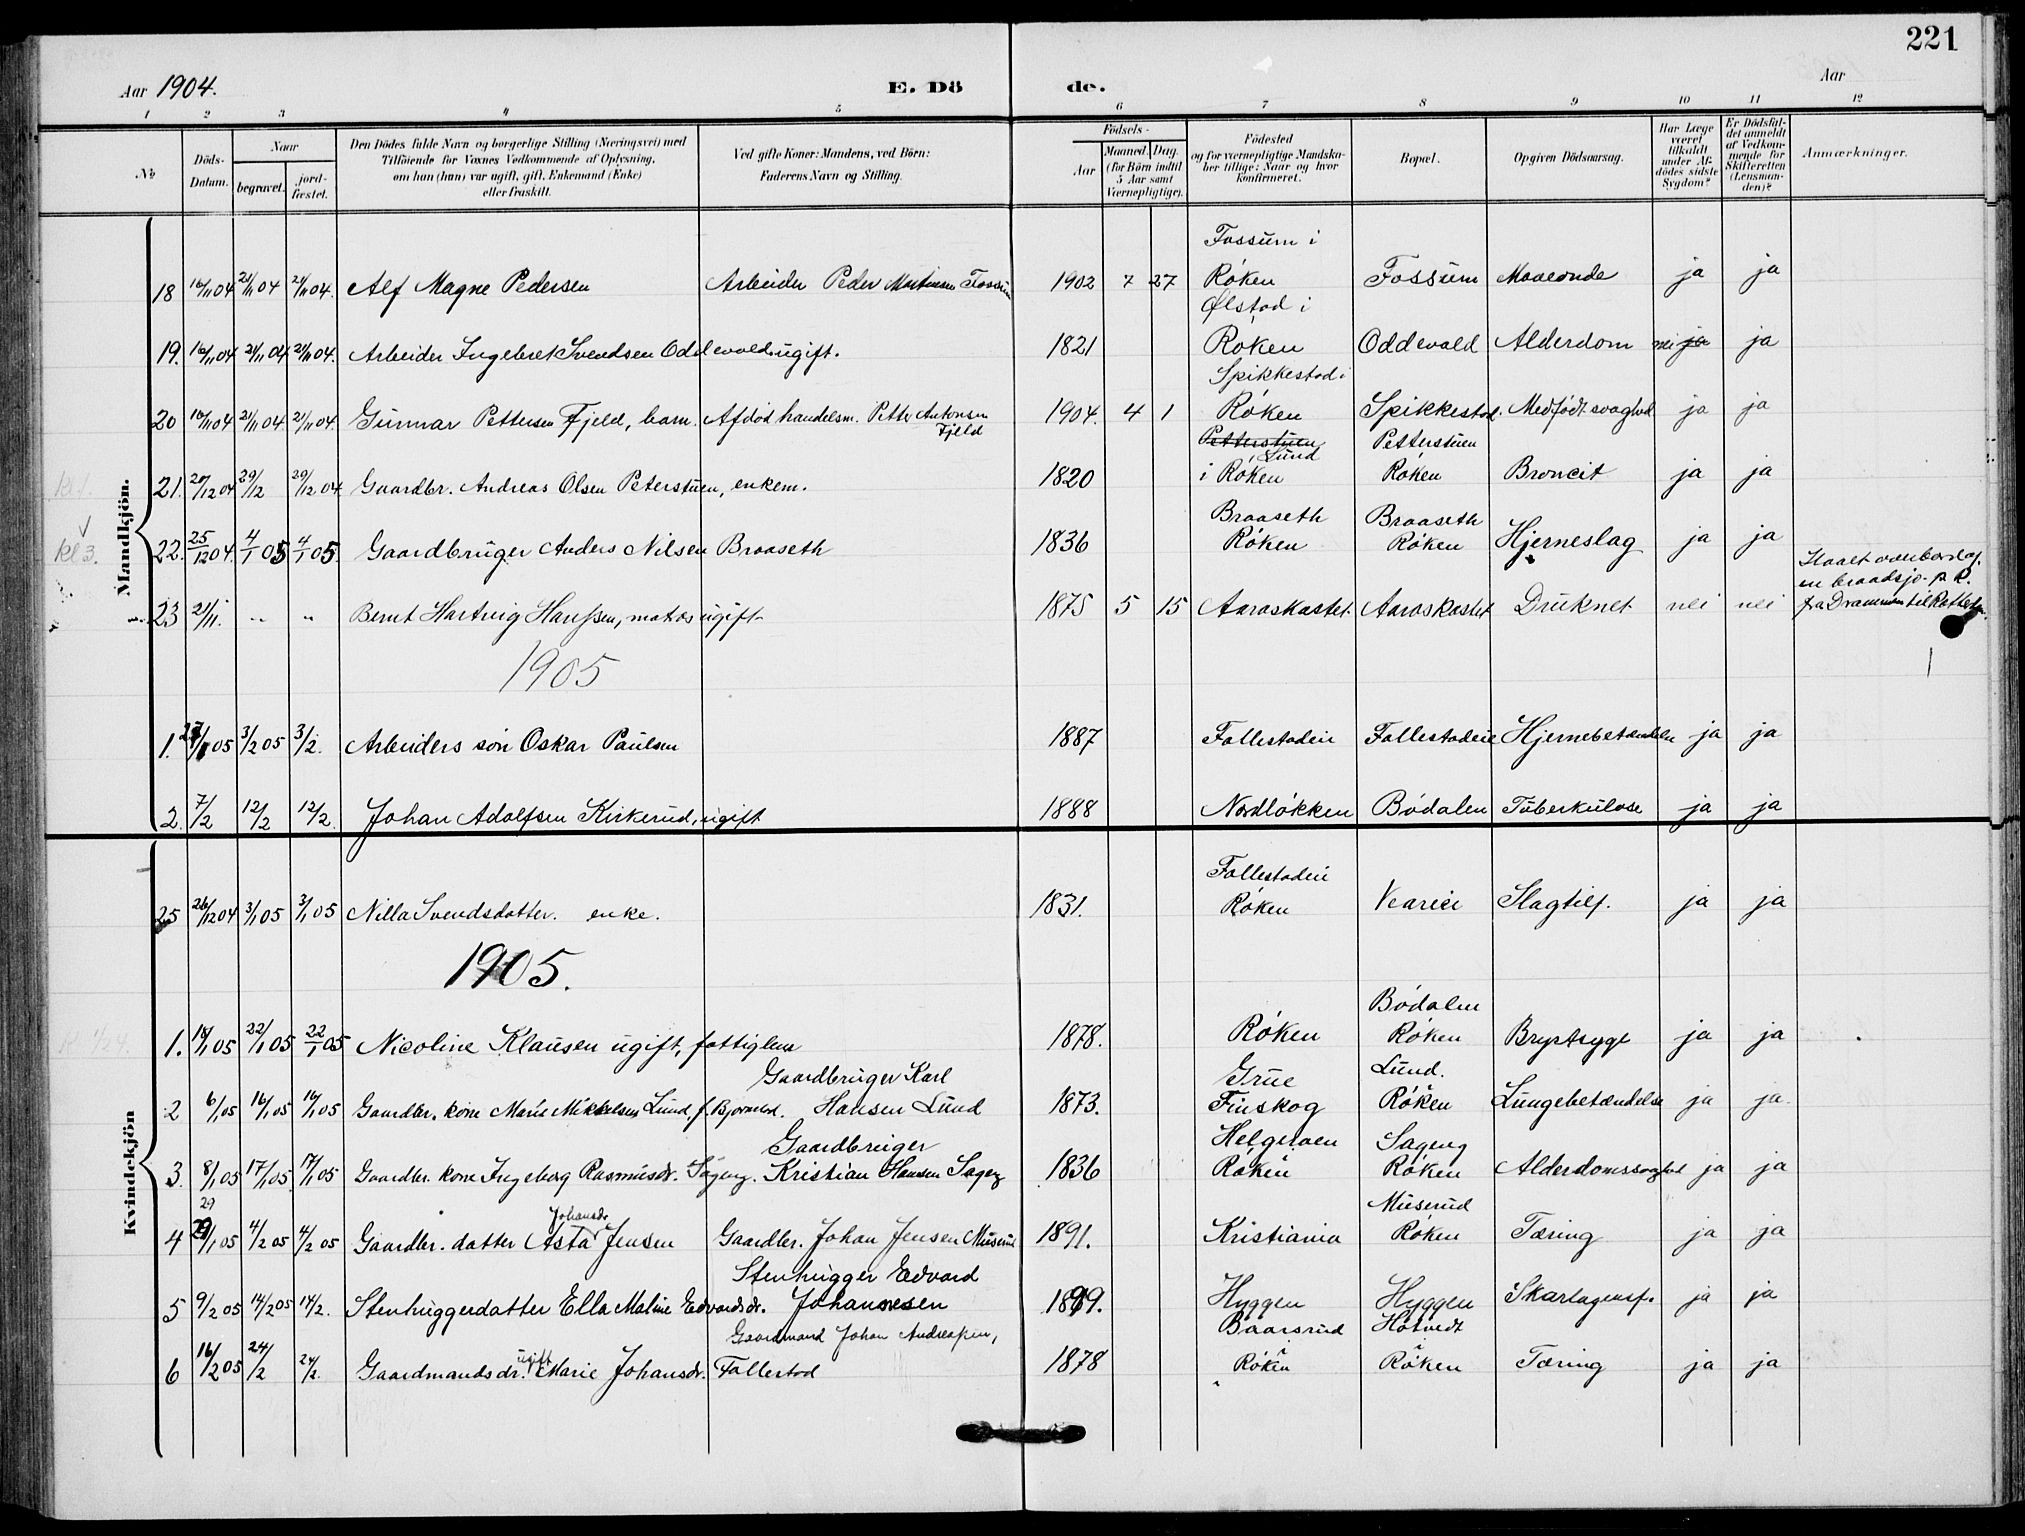 221
Aar 1904.
E. Dö
de.
Aar
1 2 3 4 5 6 7 8 9 10 11 12
No
Döds-
Datum.
Naar
begravet.
jord-
fæstet.
Den Dödes fulde Navn og borgerlige Stilling (Næringsvei) med
Tilföiende for Voxnes Vedkommende af Oplysning,
om han (hun) var ugift, gift, Enkemand (Enke)
eller fraskilt.
Ved gifte Koner: Mandens, ved Börn:
Faderens Navn og Stilling.
Födsels-
Aar
Maaned. Dag.
(for Börn indtil
5 Aar samt
Værnepligtige).
Födested
og for værnepligtige Mandska-
ber tillige: Naar og hvor
konfirmeret.
Bopæl.
Opgiven Dödsaarsag.
Har Læge
været
tilkaldt
under Af-
dödes sidste
Sygdom?
Er Dödsfal-
det anmeldt
af Vedkom-
mende for
Skifteretten
(Lensman-
den)?
Anmærkninger.
Mandkjön.
Fossum i
18 16/11 04 21/11 04 21/11 04. Alf Magne Pedersen Arbeider Peder Martinsen Fossum 1902 7 27 Røken Fossum Mavonde ja ja
Ølstad i
19. 16/11 04 21/11 04 21/11 04. Arbeider Ingebret Svendsen Oddevold. ugift. 1821 Røken Oddevald Alderdom nei ja ja
Spikkestad i
20 16/11 04 21/11 04. 21/11 04. Gunnar Pettersen Fjeld, barn. Afdød handelsm. Petter Antonsen 1904. 4 1 Røken Spikkestad. Medfødt svaghed ja ja
Fjeld
Petterstuen Petterstuen
Lund
21. 27/12 04 29/12 29/12 04 Gaardbr. Andreas Olsen Peterstuen, enkem. 1820 i Røken Røken Broncit ja ja
Kl 3.
Braaseth Braaseth
22. 25/12 04. 4/1 05 4/1 05. Gaardbruger Anders Nilsen Braaseth 1836 Røken Røken Hjerneslag ja ja
Slaaet overbord af
en braadsjø p. R.
23 21/11. " " Bernt Hartvig Hansen, matros ugift 1875 5 15 Aaraskastet Aaraskastet Druknet nei nei fra Drammen til
1905
1. 27/1 05 3/2 05 3/2. Arbeiders søn Oskar Paulsen 1887 Follestadeie Follestadeie Hjernebetændelse ja ja
2. 7/2 12/2 12/2. Johan Adolfsen Kirkerud, ugift 1888 Nordløkken Bødalen Tuberkulose ja ja
Kvindekjön
Follestadeie
25 26/12 04 3/1 05 3/1 05 Nilla Svendsdatter. enke. 1831. Røken Veareie Slagtilf. ja ja
1905.
Bødalen
1. 18/1 05 22/1 05 22/1 05 Nicoline Klausen ugift, fattiglem 1878. Røken Røken Brystsyge ja ja
Gaardbruger Karl Grue Lund.
2 6/1 05 16/1 05 16/1 05 Gaardbr. kone Marie Mikkelsen Lund f. Bjørnstad. Hansen Lund 1873. Finskog Røken Lungebetændelse ja ja
Gaardbruger Helgeraen Sageng
3. 8/1 05 17/1 05. 17/1 05 Gaardbr. kone Ingeborg Rasmusdr. Sageng. Kristian Hansen Sageng 1836 Røken Røken Alderdomssvaghed ja ja
29 Johansdr. Muserud
4 29/1 05 4/2 05 4/2 05 Gaardbr. datter Asta Jensen Gaardbr. Johan Jensen Muserud 1891. Kristiania Røken Tæring ja ja
Stenhugger Edvard
5 9/2 05 14/2 05 14/2. Stenhuggerdatter Ella Maline Edvardsdr. Johannesen 1899. Hyggen Hyggen Skarlagensf. ja ja
Gaardmand Johan Andreasen, Baarsrud Høtvedt
6 16/2 05 24/2 24/2. Gaardmandsdr. ugift Marie Johansdr. Follestad 1878 Røken Røken Tæring ja ja